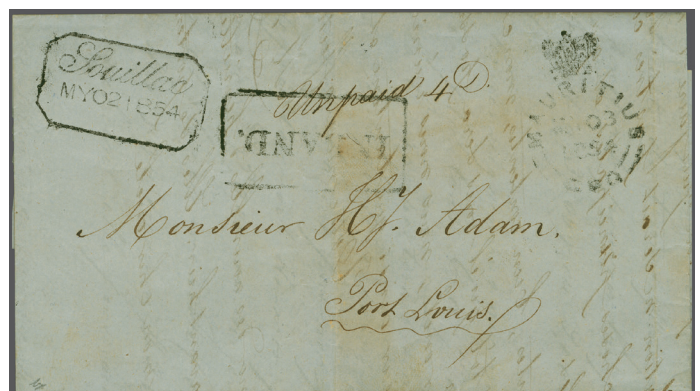 Souillac
MY 02 1854
Unpaid 4D.
INLAND.
MAURITIUS
MY 03
1854
GPO
Monsieur HJ. Adam.
Port Louis.